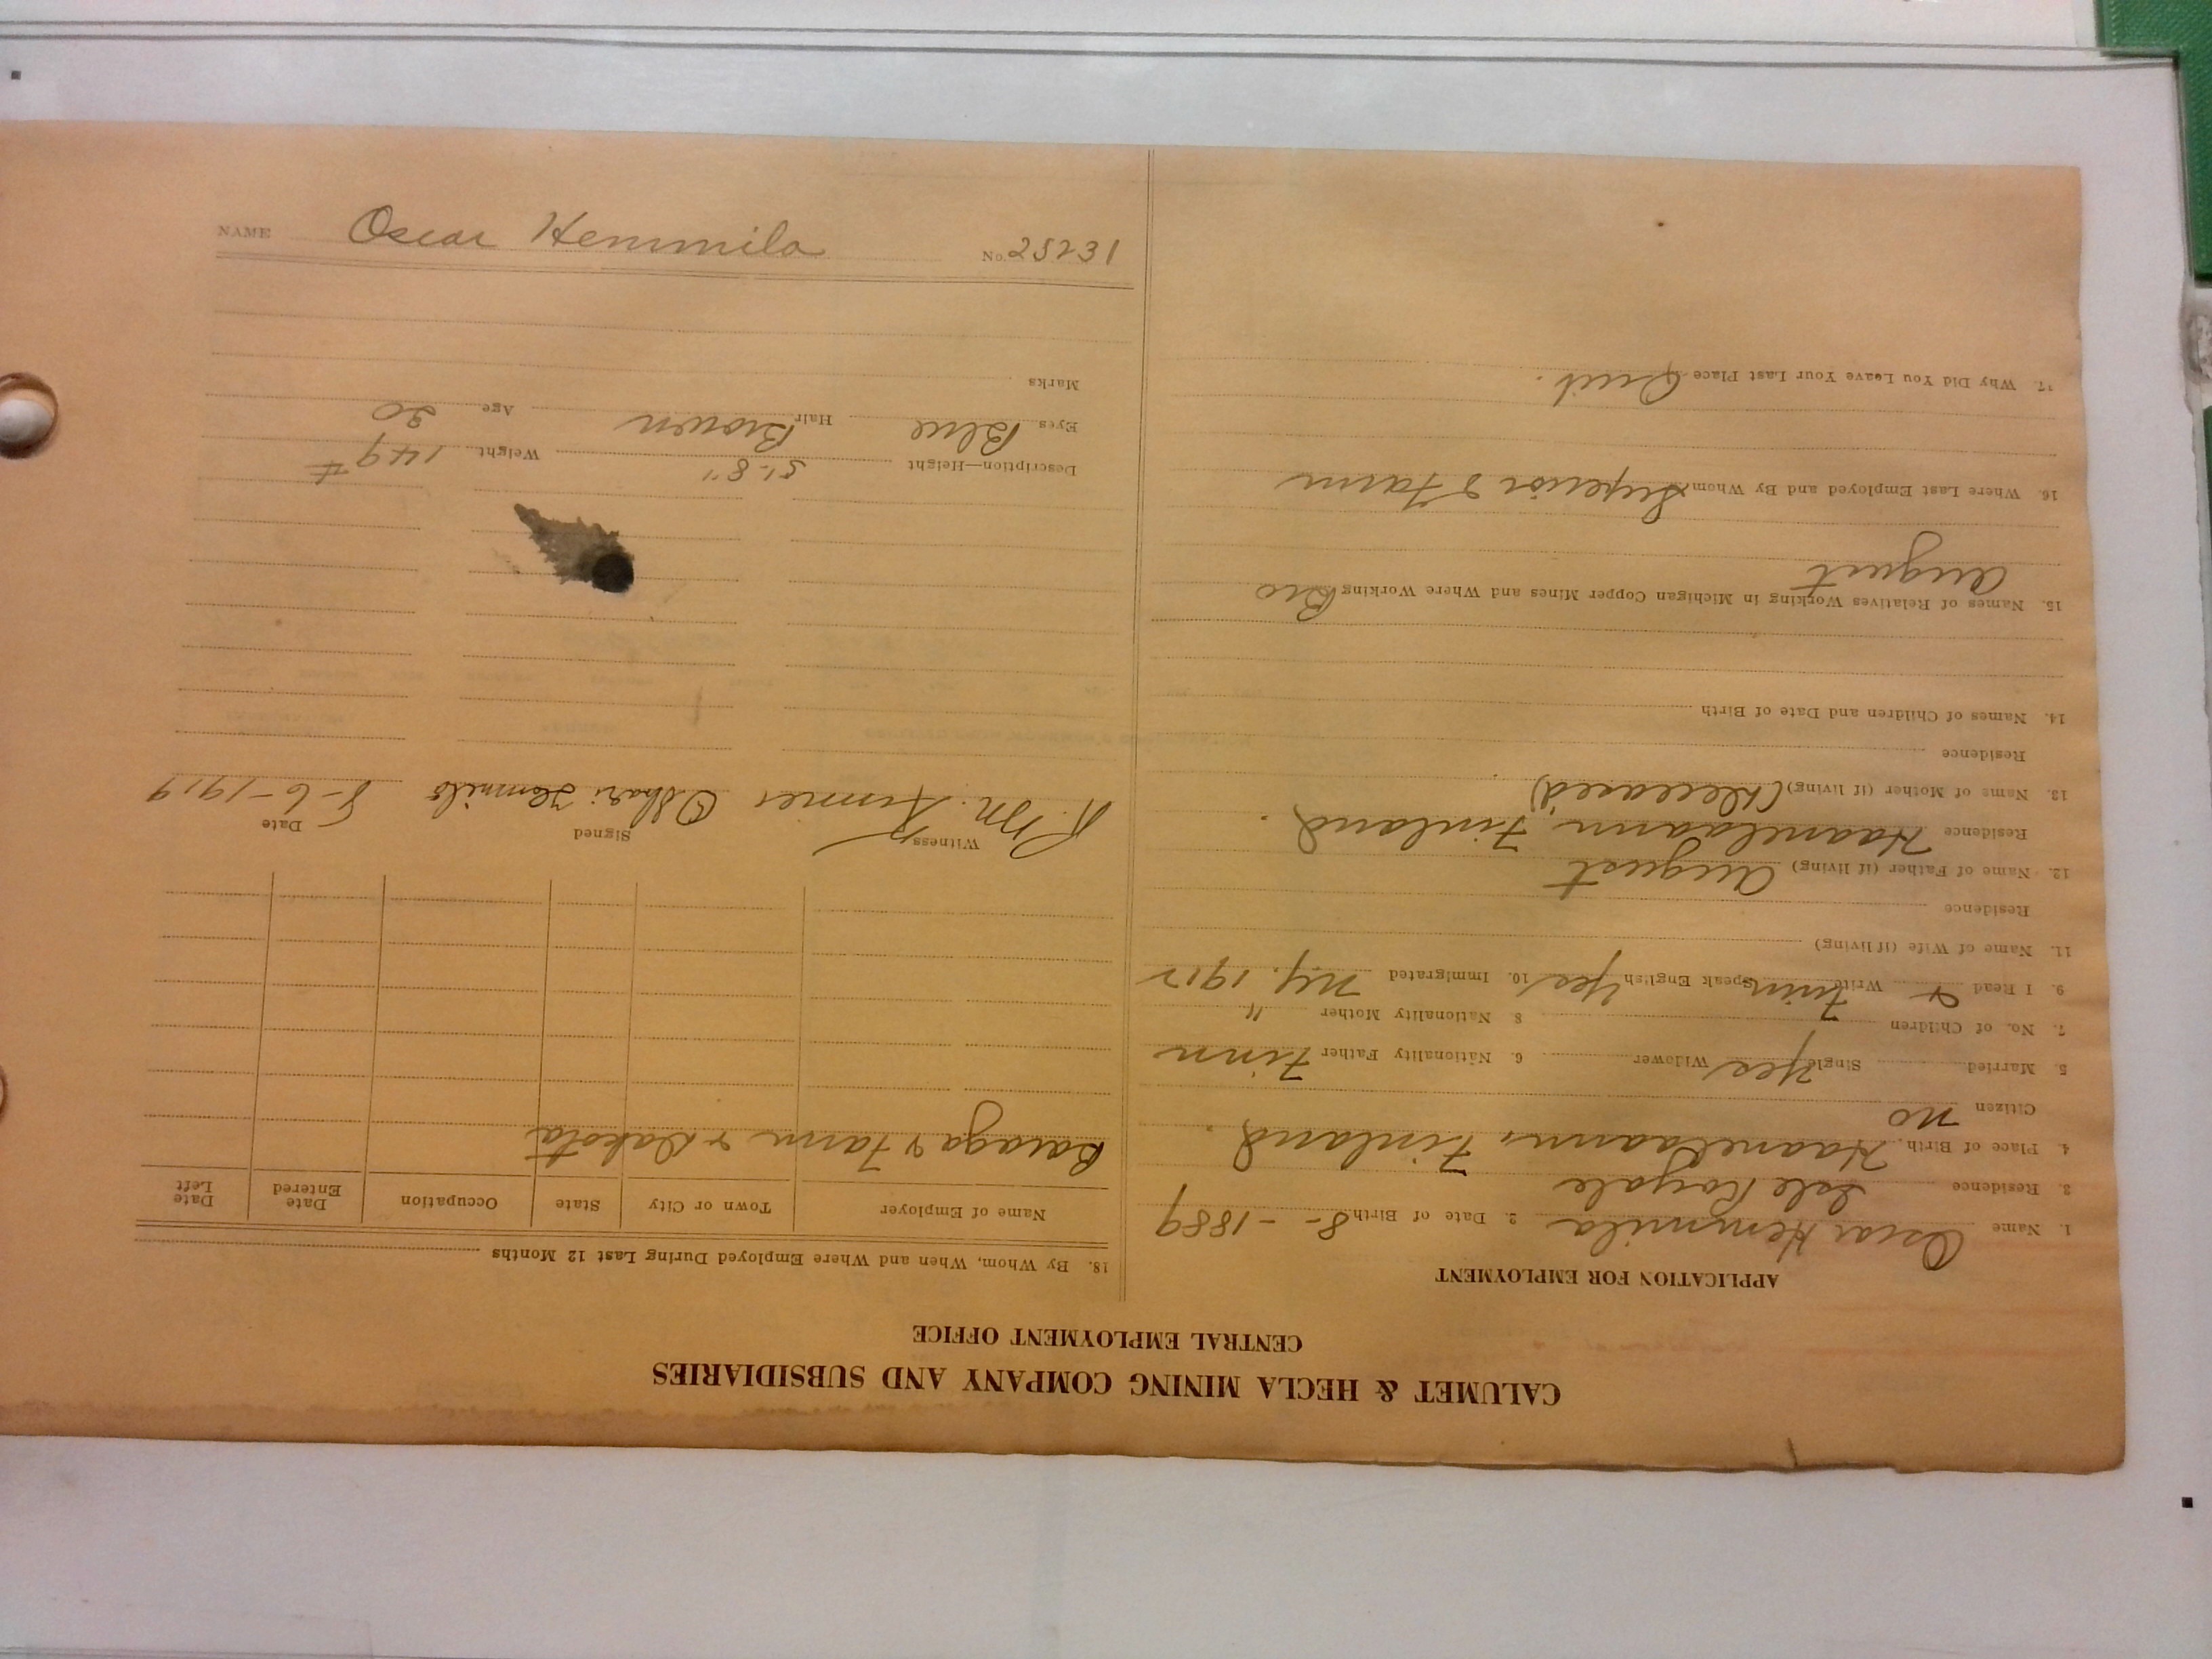 CALUMET & HECLA MINING COMPANY AND SUBSIDIARIES
CENTRAL EMPLOYMENT OFFICE
APPLICATION FOR EMPLOYMENT
1. Name Oscar Hemmila 2. Date of Birth 8 - - 1889
3. Residence Isle Royale
4. Place of Birth Haanelaann, Finland.
Citizen no
5. Married Single Yes Widower 6. Nationality Father Finn
7. No. of Children 8 Nationality Mother "
9. I Read & Write Finn Speak English Yes 10. Immigrated N.Y. 1912
11. Name of Wife (if living)
Residence
12. Name of Father (if living) August
Residence Haanelaann, Finland.
13. Name of Mother (if living) (Deceased)
Residence
14. Names of Children and Date of Birth
15. Names of Relatives Working in Michigan Copper Mines and Where Working Bro
August
16. Where Last Employed and By Whom Superior & Farm
17. Why Did You Leave Your Last Place Quit.
18. By Whom, When and Where Employed During Last 12 Months
Name of Employer Town or City State Occupation Date Entered Date Left
Baraga & Farm & Dakota
Witness Signed Date
Hemmila 8-6-1919
Description—Height 5'-8" Weight 149 #
Eyes Blue Hair Brown Age 30
Marks
NAME Oscar Hemmila No. 25231